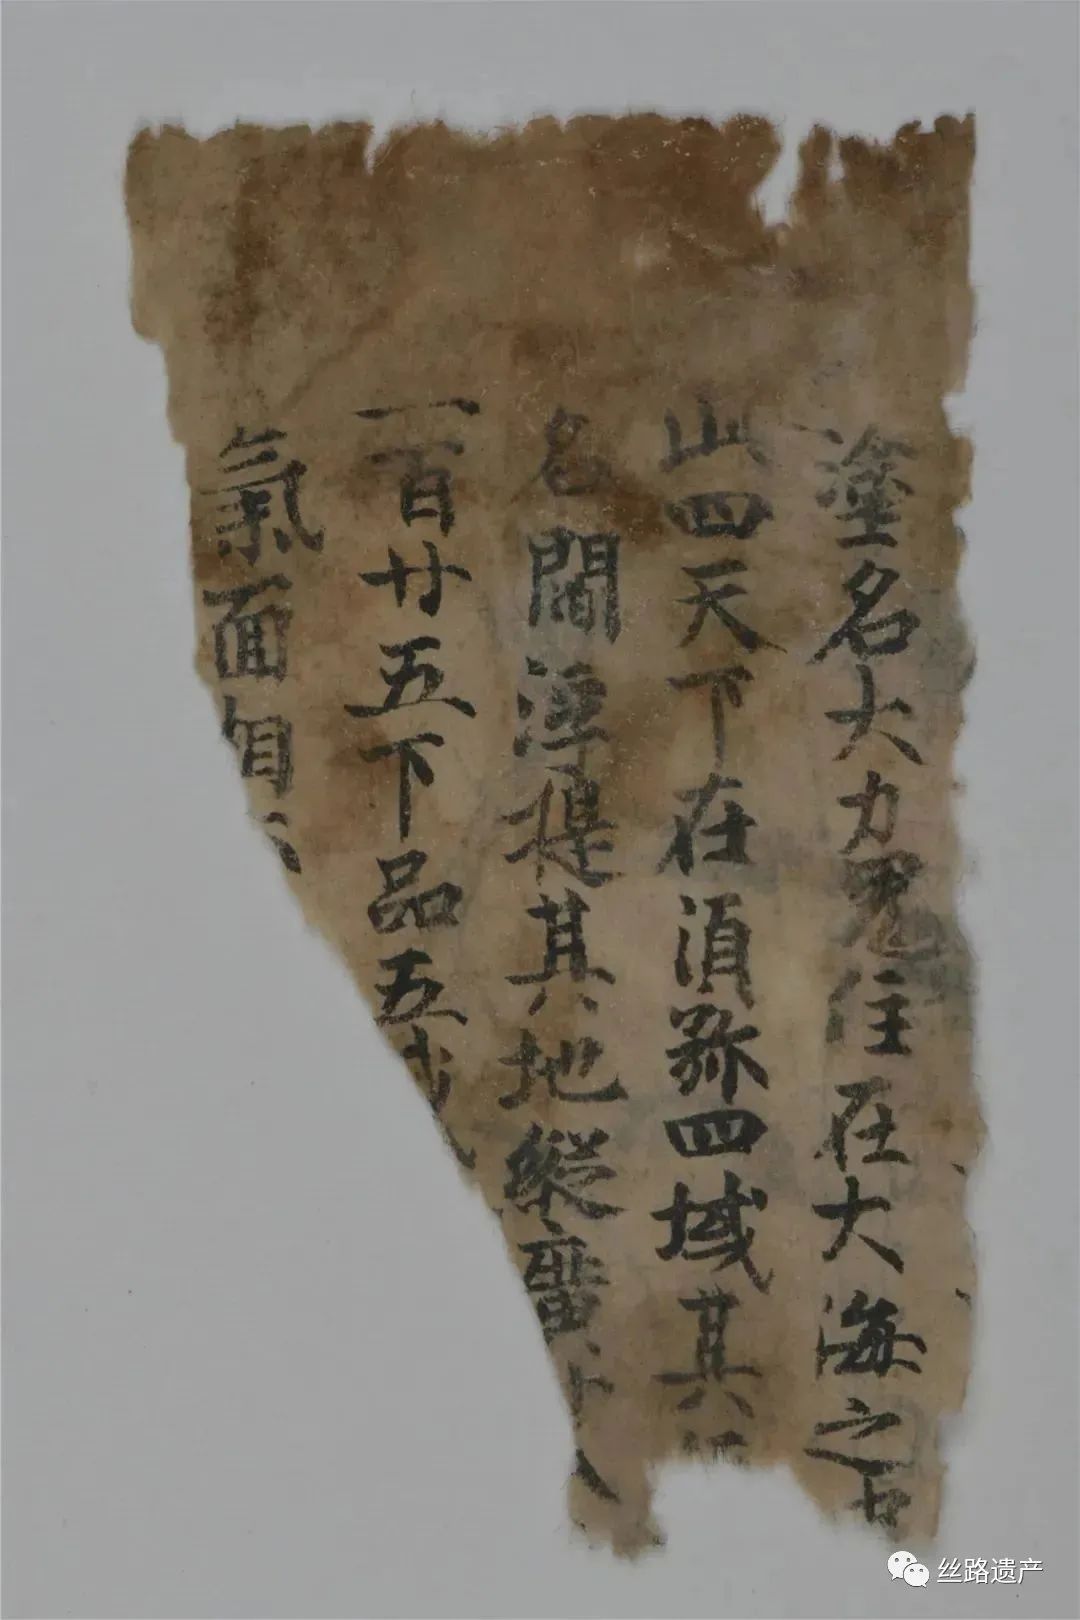 塗名大力鬼住在大海之
山四天下在須弥四域其
名閻浮提其地縱廣
一百廿五下品五
氣面
丝路遗产